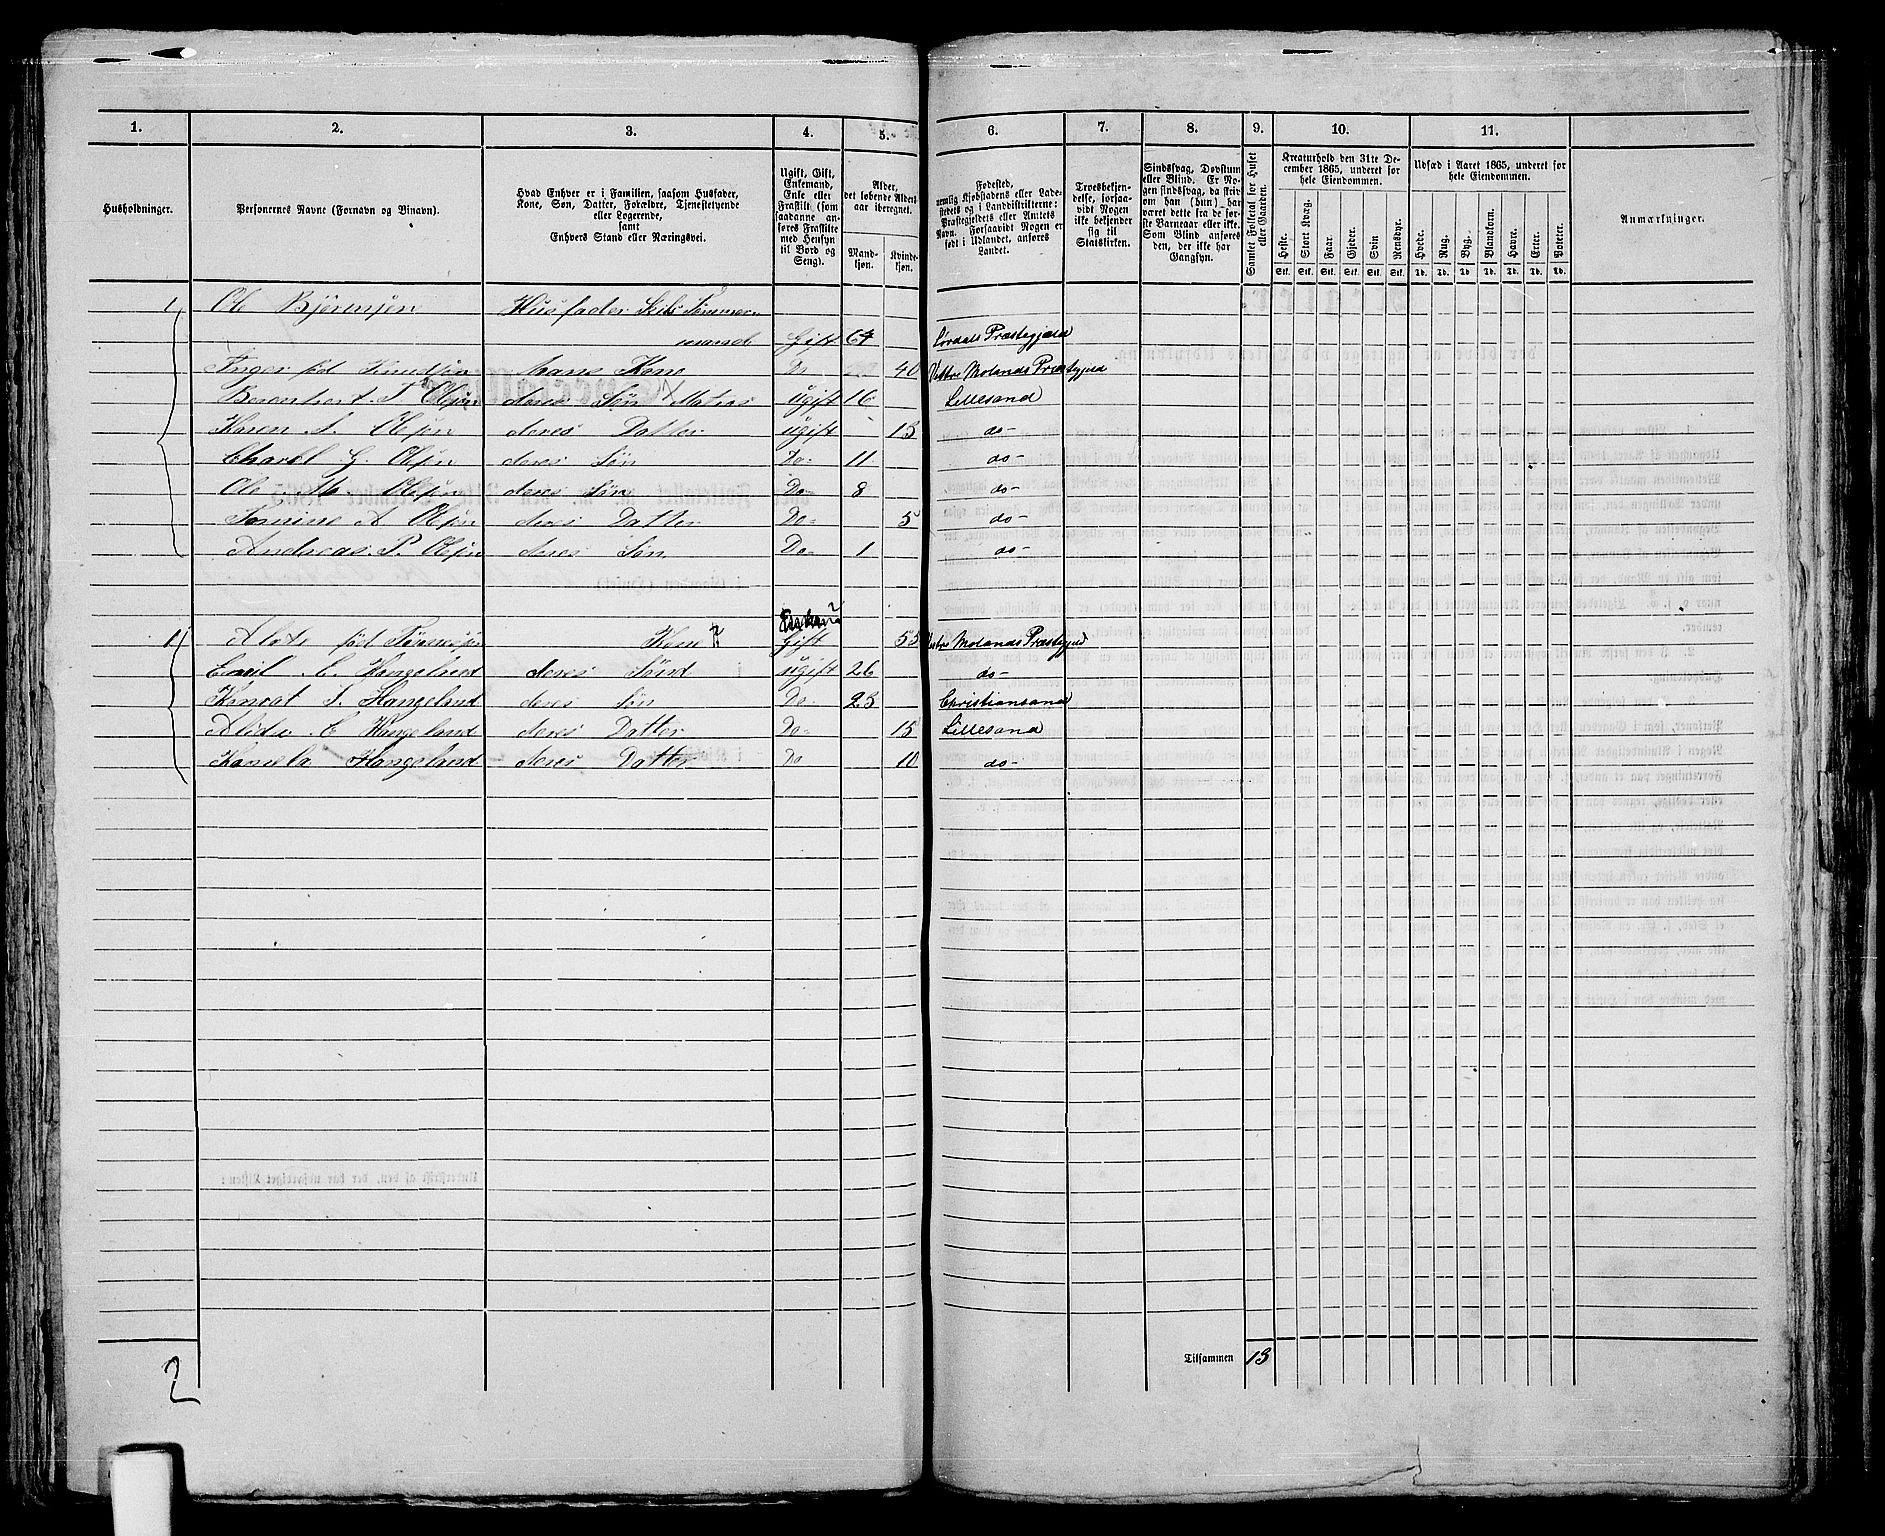 1. 2. 3. 4. 5. 6. 7. 8. 9. 10. 11.
Husholdninger.
Personernes Navne (Fornavn og Tilnavn).
Hvad Enhver er i Familien, saasom Husfader,
Kone, Søn, Datter, Forældre, Tjenestetyende
eller Logerende,
samt
Enhvers Stand eller Næringsvei.
Ugift, Gift,
Enkemand,
Enke eller
Fraskilt (som
saadanne an-
føres Fraskilte
med Hensyn
til Bord og
Seng).
Alder,
det løbende Alders-
aar iberegnet.
Mand-
kjøn.
Kvinde-
kjøn.
Fødested,
nemlig Kjøbstadens eller Lade-
stedets og i Landdistrikterne:
Præstegjeldets eller Amtets
Navn. Forsaavidt Nogen er
født i Udlandet, anføres
Landet.
Troesbekjen-
delse, forsaa-
vidt Nogen
ikke bekjender
sig til
Statskirken.
Sindssvag, Døvstum
eller Blind. Er No-
gen sindssvag, da skri-
ves om han (hun) har
været dette fra de før-
ste Barneaar eller ikke.
Som Blind anføres
den, der ikke har
Gangsyn.
Samlet Folketal for Huset
eller Gaarden.
Kreaturhold den 31te De-
cember 1865, underet for
hele Eiendommen.
Heste. Stort Kvæg. Faar. Gjeder. Svin Rensdyr.
Stk. Stk. Stk. Stk. Stk. Stk.
Udsæd i Aaret 1865, underet for
hele Eiendommen.
Hvede. Rug. Byg. Blandkorn. Havre. Erter. Poteter.
Td. Td. Td. Td. Td. Td. Td.
Anmærkninger.
1 Ole Bjørensen Husfader Skibs Tømmer-
mand Gift 64 Præstegjæld
Inger fød Knudsen hans Kone Do 40 Vestre Molands Præstegjeld
Berenhert Olsen deres Søn Matros ugift 16 Lillesand
Karen A. Olsen deres Datter ugift 13 do-
Charel G Olsen deres Søn Do- 11 do-
Ole Olsen deres Søn Do- 8 do-
Tomine A Olsen deres Datter Do- 5 do-
Andreas P. Olsen deres Søn Do- 1 do-
1 fød Kone Gift Vestre Molands Præstegjeld
Emil C Hangeland deres Søn ugift 26 do-
Konrat Hangeland deres Søn Do- 23 Christiansand
C Hangeland deres Datter Do- 15 Lillesand
Hangeland deres Datter Do 10 do-
Tilsammen 13
2